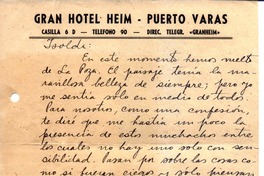 GRAN HOTEL HEIM - PUERTO VARAS
CASILLA 6 D - TELEFONO 90 - DIREC. TELEGR. «GRANHEIM»
Isolda:
En este momento hemos vuelto
de La Poza. El paisaje tenía la ma-
ravillosa belleza de siempre; pero yo
me sentía solo en medio de todos.
Para nosotros, como una confesión,
te diré que me hastía un poco la
presencia de estos muchachos entre
los cuales no hay uno solo con sen-
sibilidad. Pasan por sobre las cosas como
si fueran ciegos y solo piensan